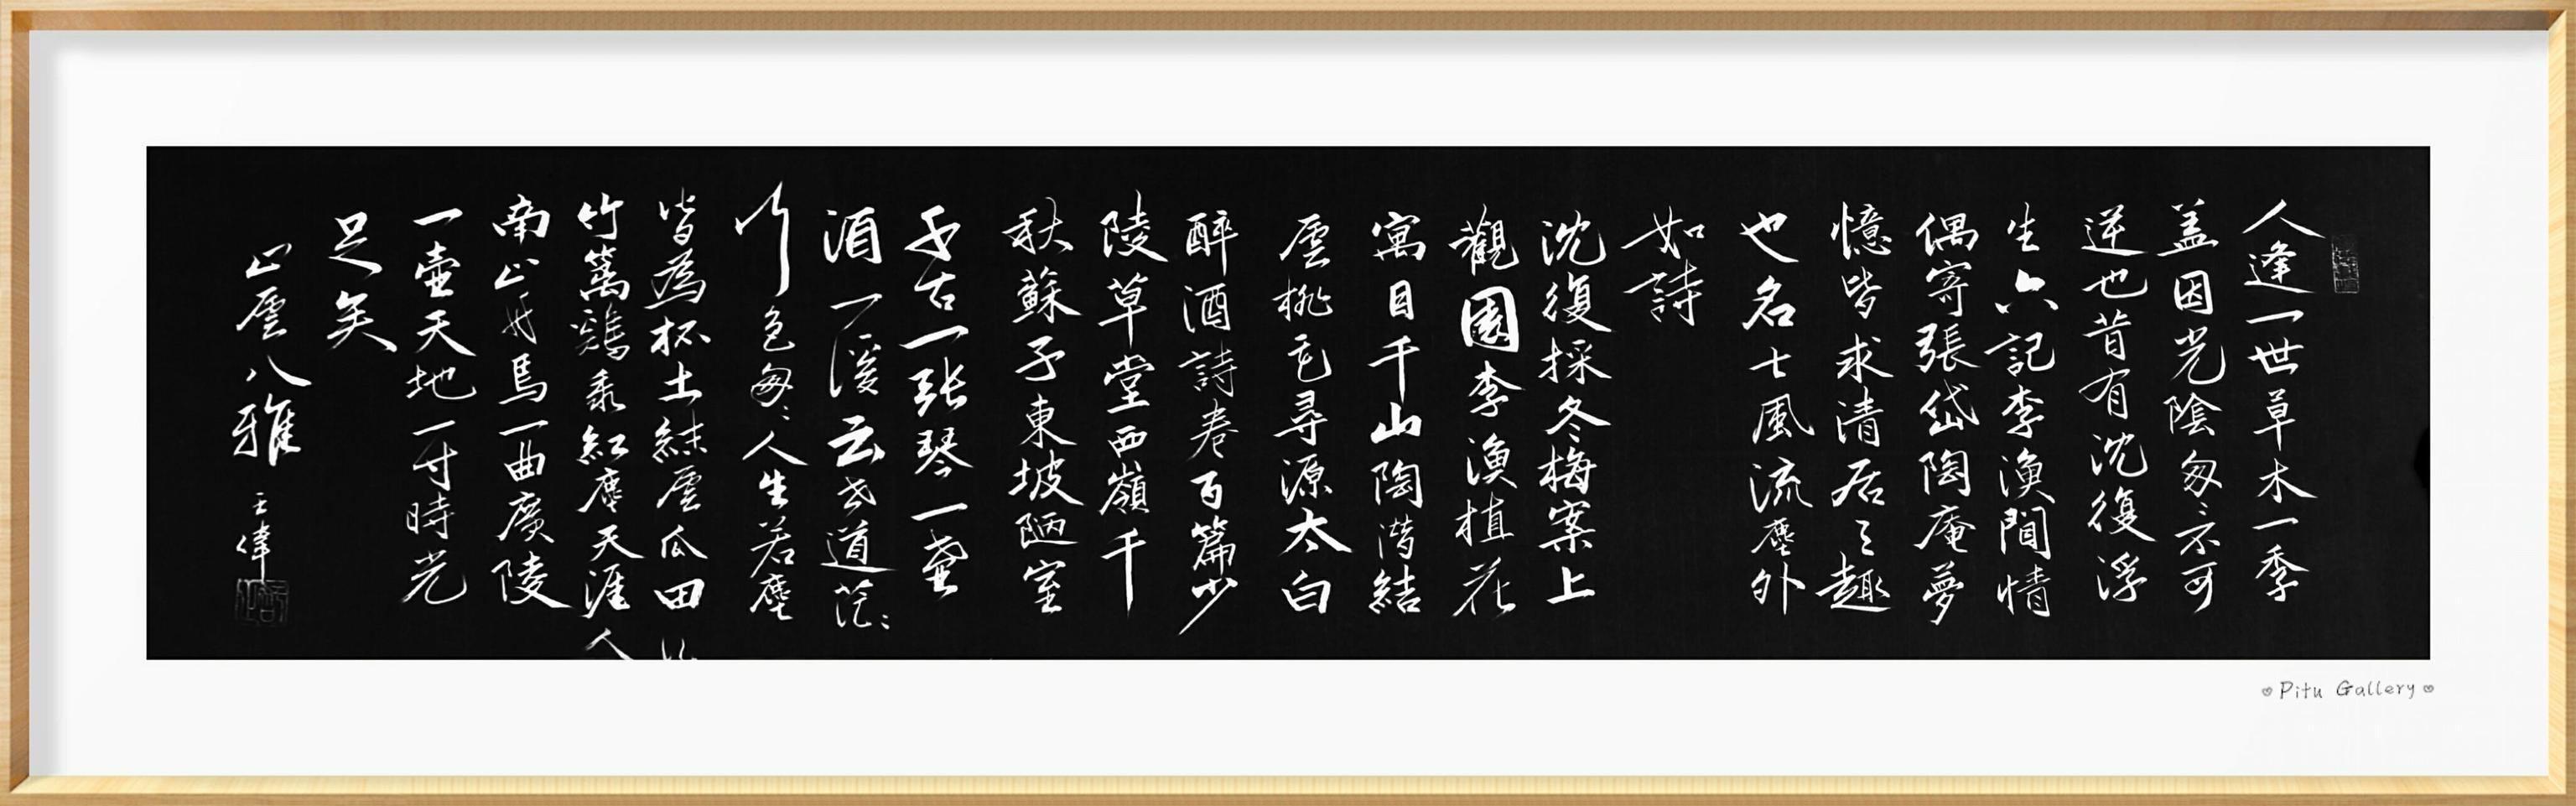 人逢一世草木一季
盖因光陰匆匆不可
逆也昔有沈復浮
生六記李漁閒情
偶寄張岱陶庵夢
憶皆求清居之趣
也名士風流塵外
如詩
沈復採冬梅案上
觀園李漁植花
寓目千山陶潜結
廬桃花尋源太白
醉酒詩卷百篇少
陵草堂西嶺千
秋蘇子東坡陋室
千古一張琴一壺
酒一溪云
行色匆匆人生若塵
皆為杯土結廬瓜田
竹篱鷄黍紅塵天涯人
南山 馬一曲廣陵
一壺天地一寸時光
足矣
山房八雅 王偉
Pitu Gallery